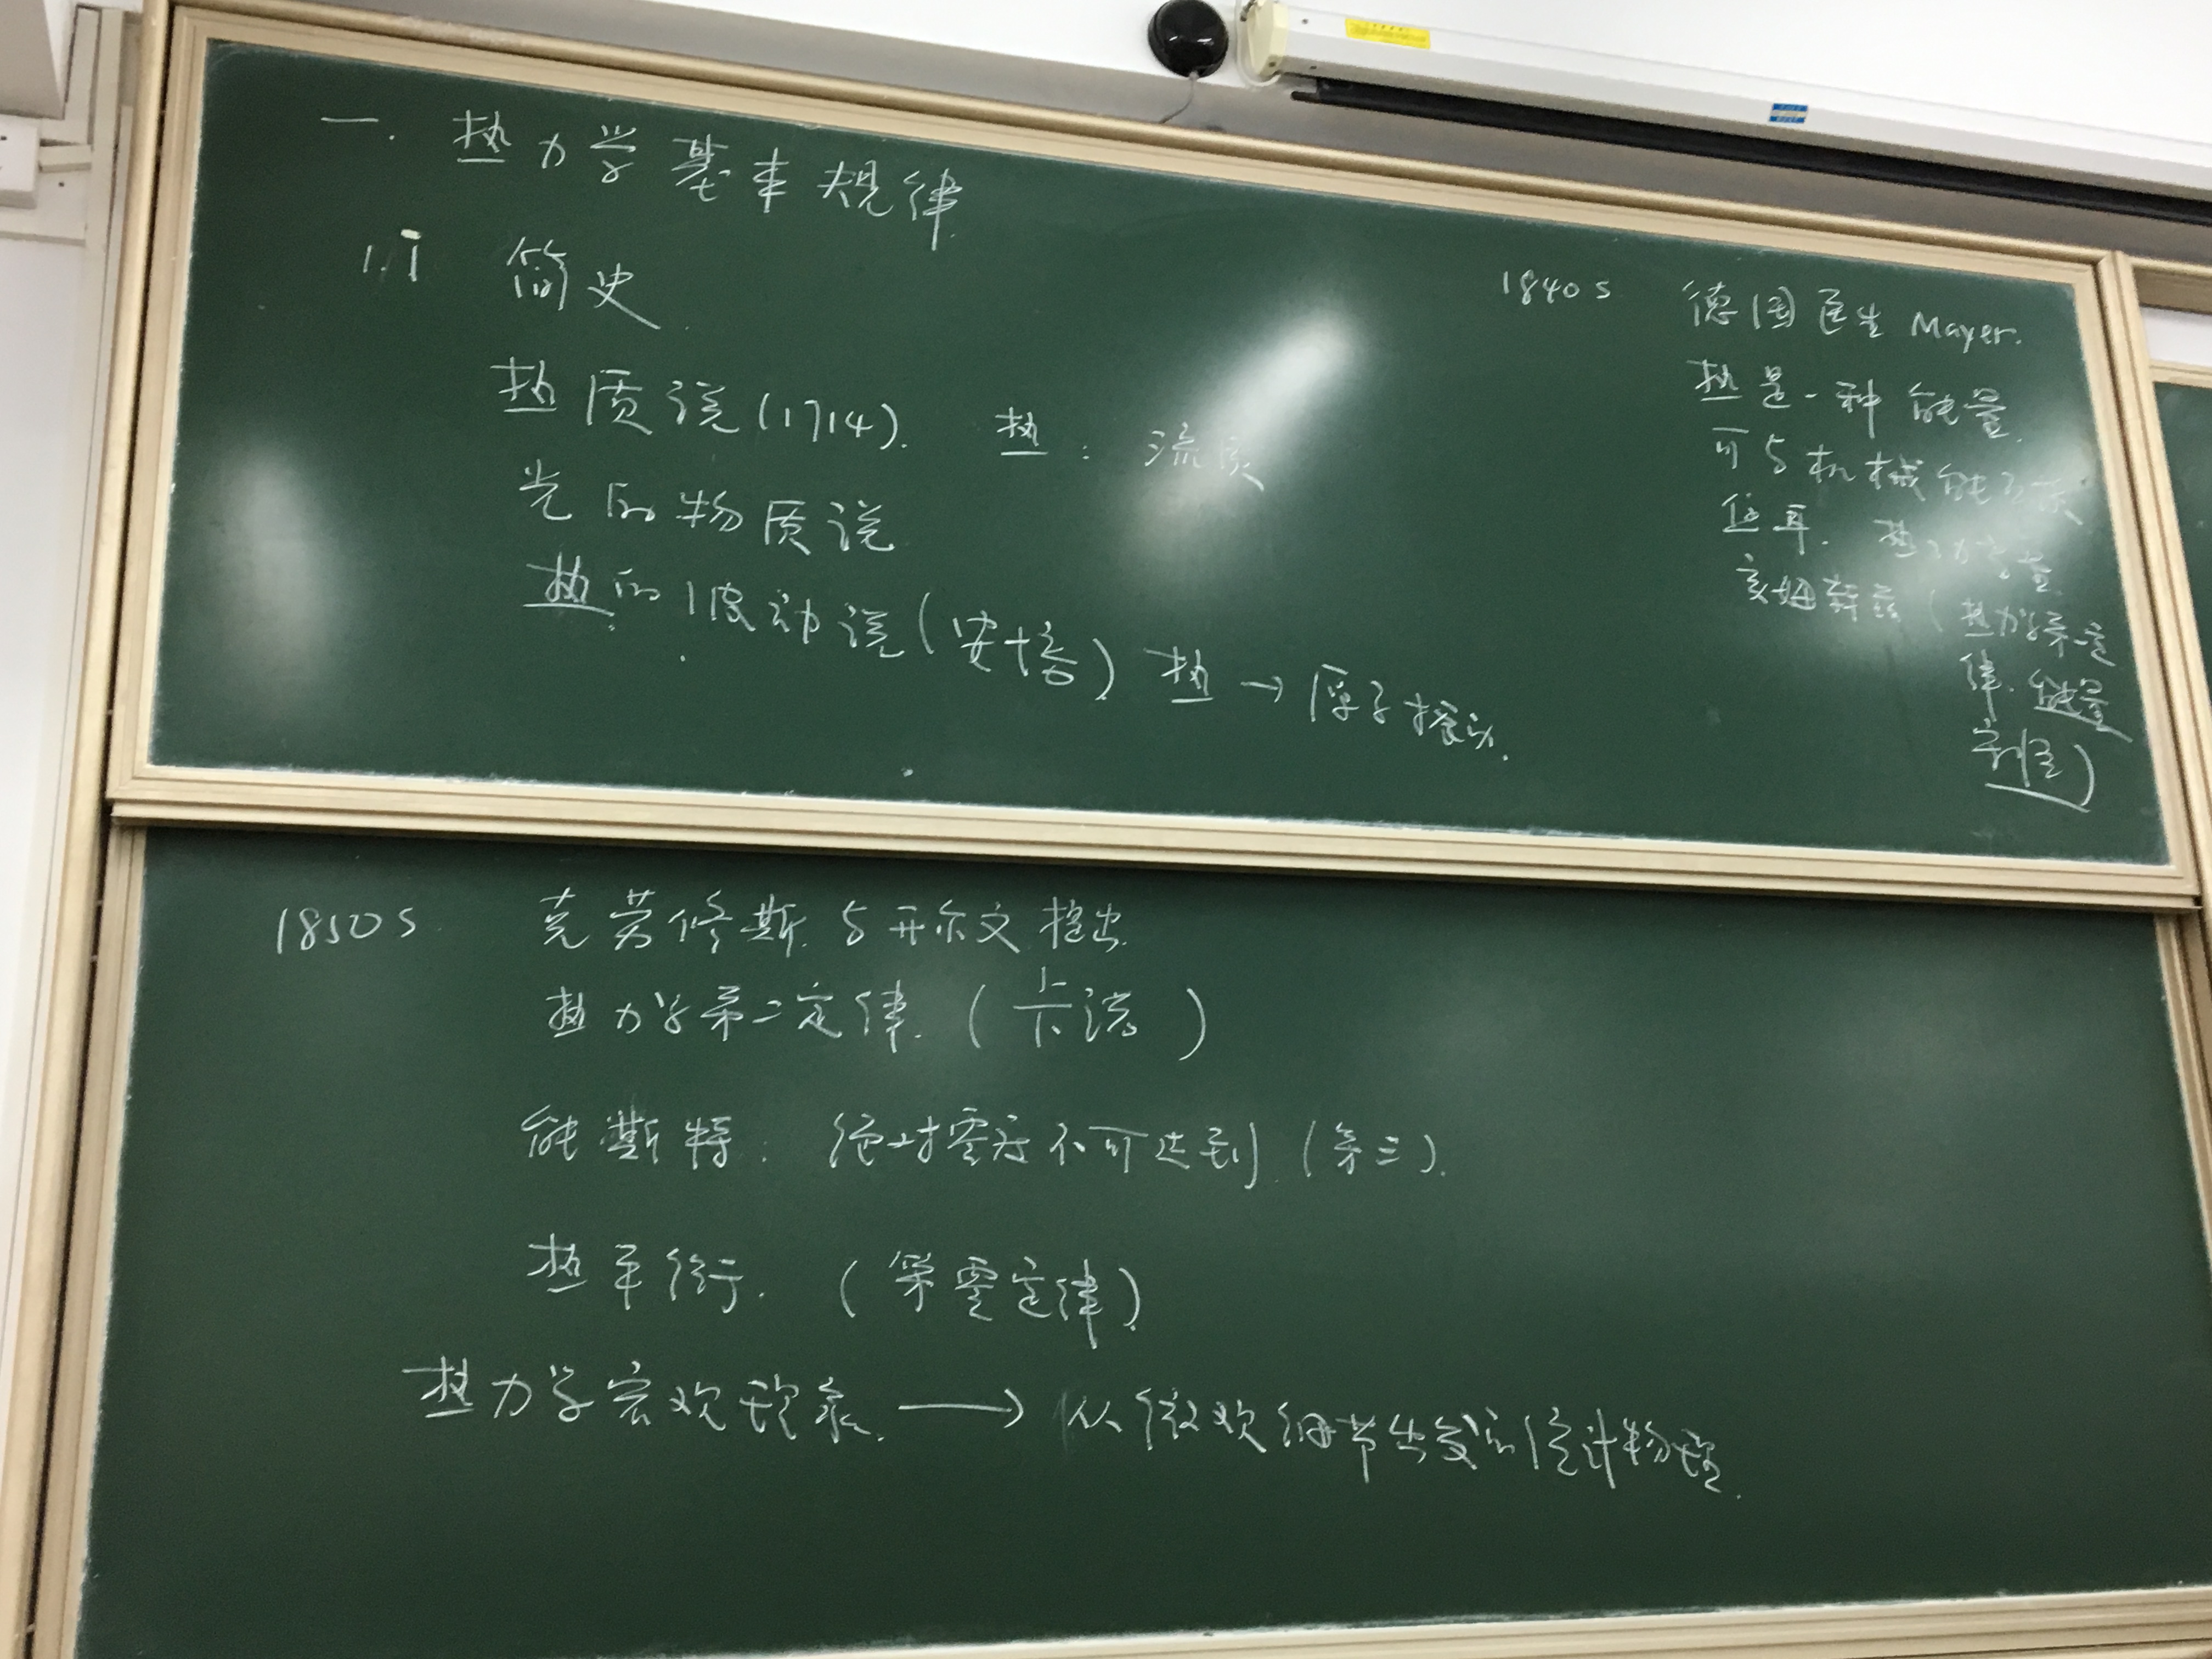 一. 热力学基本规律
1.1 简史
热质说(1714). 热: 流质
光的物质说
热的波动说(安培) 热→原子振动.
1840s 德国医生 Mayer.
热是一种能量.
可与机械能互换
焦耳. 热功当量
亥姆霍兹(热力学第一定
律. 能量
守恒)
1850s 克劳修斯与开尔文提出
热力学第二定律. (卡诺)
能斯特: 绝对零度不可达到 (第三).
热平衡. (第零定律)
热力学宏观现象. → 从微观细节出发的统计物理.